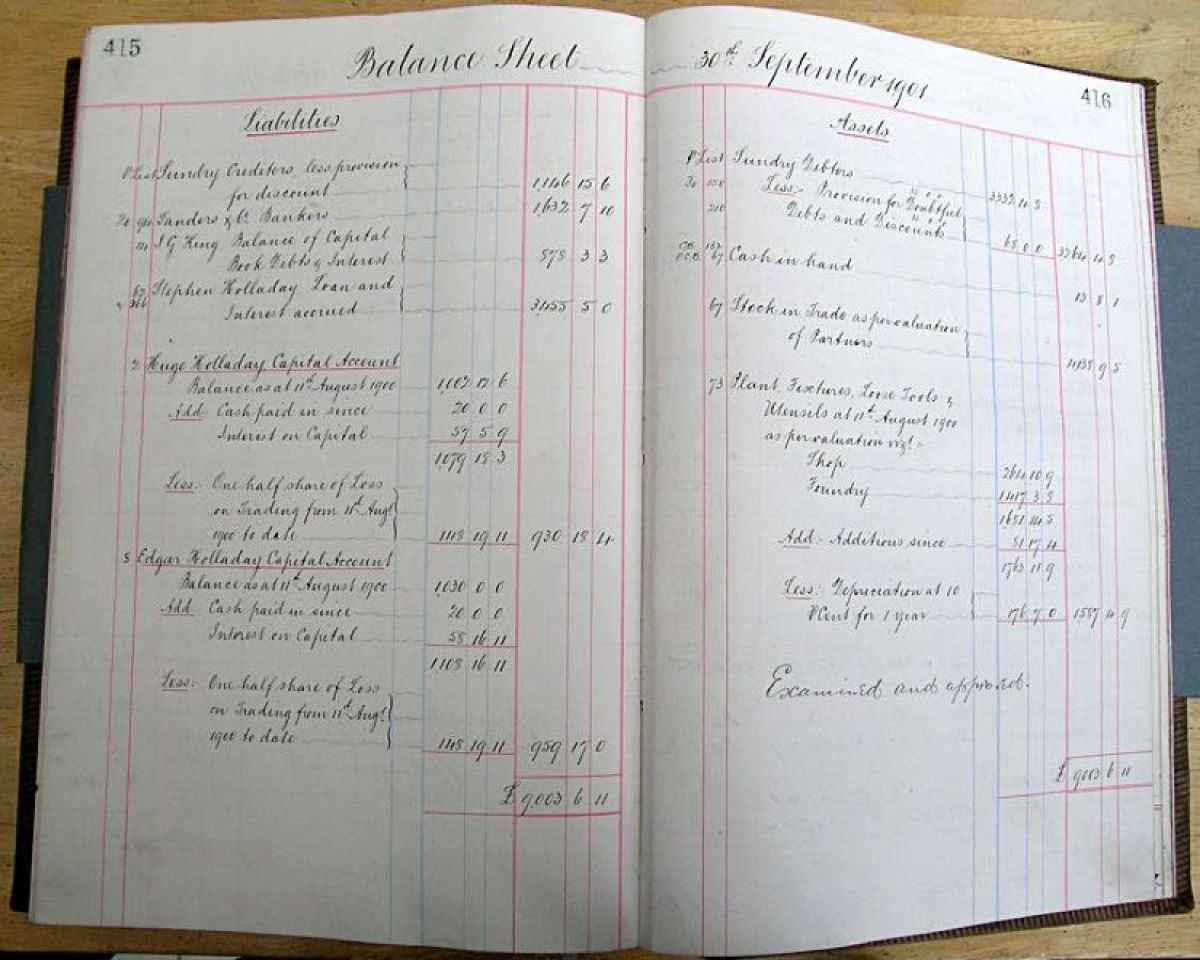 415
Balance Sheet
Liabilities
P List Sundry Creditors less provision
for discount 1,146 15 6
Sanders & Co. Bankers 1,632 7 10
J G King Balance of Capital
Book Debts & Interest 878 3 3
Stephen Holladay Loan and
Interest accrued 3,455 5 0
2 Hugo Holladay Capital Account
Balance as at 11th August 1900 1,002 12 6
Add Cash paid in since 20 0 0
Interest on Capital 57 5 9
1,079 18 3
Less:- One half share of Loss
on Trading from 11th Augt
1900 to date 148 19 11 930 18 4
8 Edgar Holladay Capital Account
Balance as at 11th August 1900 1030 0 0
Add Cash paid in since 20 0 0
Interest on Capital 58 16 11
1,108 16 11
Less:- One half share of Loss
on Trading from 11th Augt
1900 to date 148 19 11 959 17 0
£ 9,003 6 11
30th September 1901
416
Assets
P List Sundry Debtors 3332 4 8
Less:- Provision for Doubtful
210 Debts and Discounts 68 0 0 3264 4 8
67 Cash in hand 13 8 1
67 Stock in Trade as per valuation
of Partners 4138 9 5
73 Plant, Fixtures, Loose Tools &
Utensils at 11th August 1900
as per valuation vizt:-
Shop 264 10 9
Foundry 1417 3 8
1681 14 5
Add:- Additions since 81 17 4
1763 11 9
Less:- Depreciation at 10
P Cent for 1 year 176 7 0 1587 4 9
Examined and approved.
£ 9003 6 11